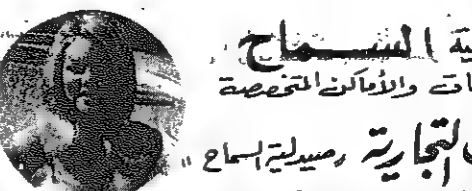 ية السماح
ات والأماكن المتخصصة
التجارية رصيدلية السماح "